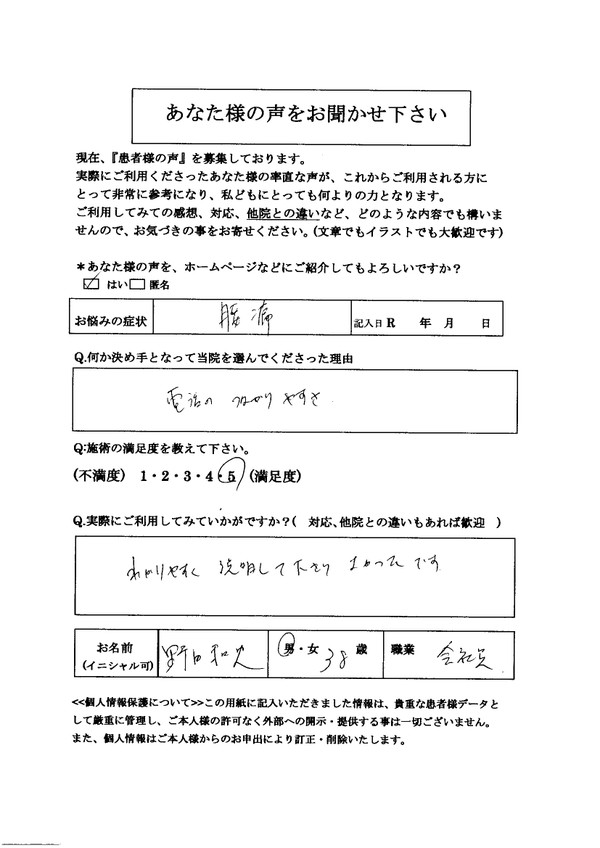 あなた様の声をお聞かせ下さい
現在、『患者様の声』を募集しております。
実際にご利用くださったあなた様の率直な声が、これからご利用される方に
とって非常に参考になり、私どもにとっても何よりの力となります。
ご利用してみての感想、対応、他院との違いなど、どのような内容でも構いま
せんので、お気づきの事をお寄せください。(文章でもイラストでも大歓迎です)
*あなた様の声を、ホームページなどにご紹介してもよろしいですか？
はい 匿名
お悩みの症状 腰痛 記入日 R 年 月 日
Q.何か決め手となって当院を選んでくださった理由
電話の つながりやすさ
Q:施術の満足度を教えて下さい。
(不満度) 1・2・3・4・5 (満足度)
Q.実際にご利用してみていかがですか？( 対応、他院との違いもあれば歓迎 )
わかりやすく 説明して下さり よかったです
お名前 野田 男・女 38 歳 職業 会社員
(イニシャル可)
<<個人情報保護について>>この用紙に記入いただきました情報は、貴重な患者様データと
して厳重に管理し、ご本人様の許可なく外部への開示・提供する事は一切ございません。
また、個人情報はご本人様からのお申出により訂正・削除いたします。